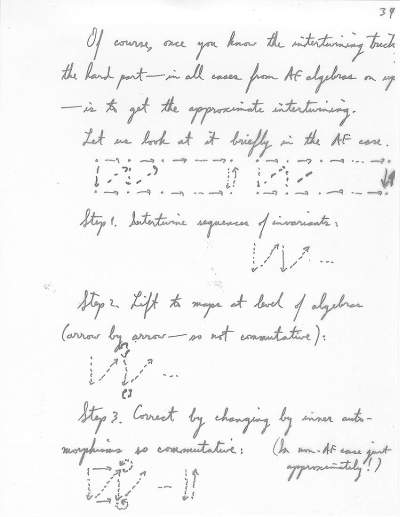 39
Of course, once you know the intertwining trick
the hard part—in all cases from AF algebras on up
—is to get the approximate intertwining.
Let us look at it briefly in the AF case.
Step 1. Intertwine sequences of invariants:
Step 2. Lift to maps at level of algebras
(arrow by arrow—so not commutative):
Step 3. Correct by changing by inner auto-
morphisms so commutative: (In non-AF case just
approximately!)